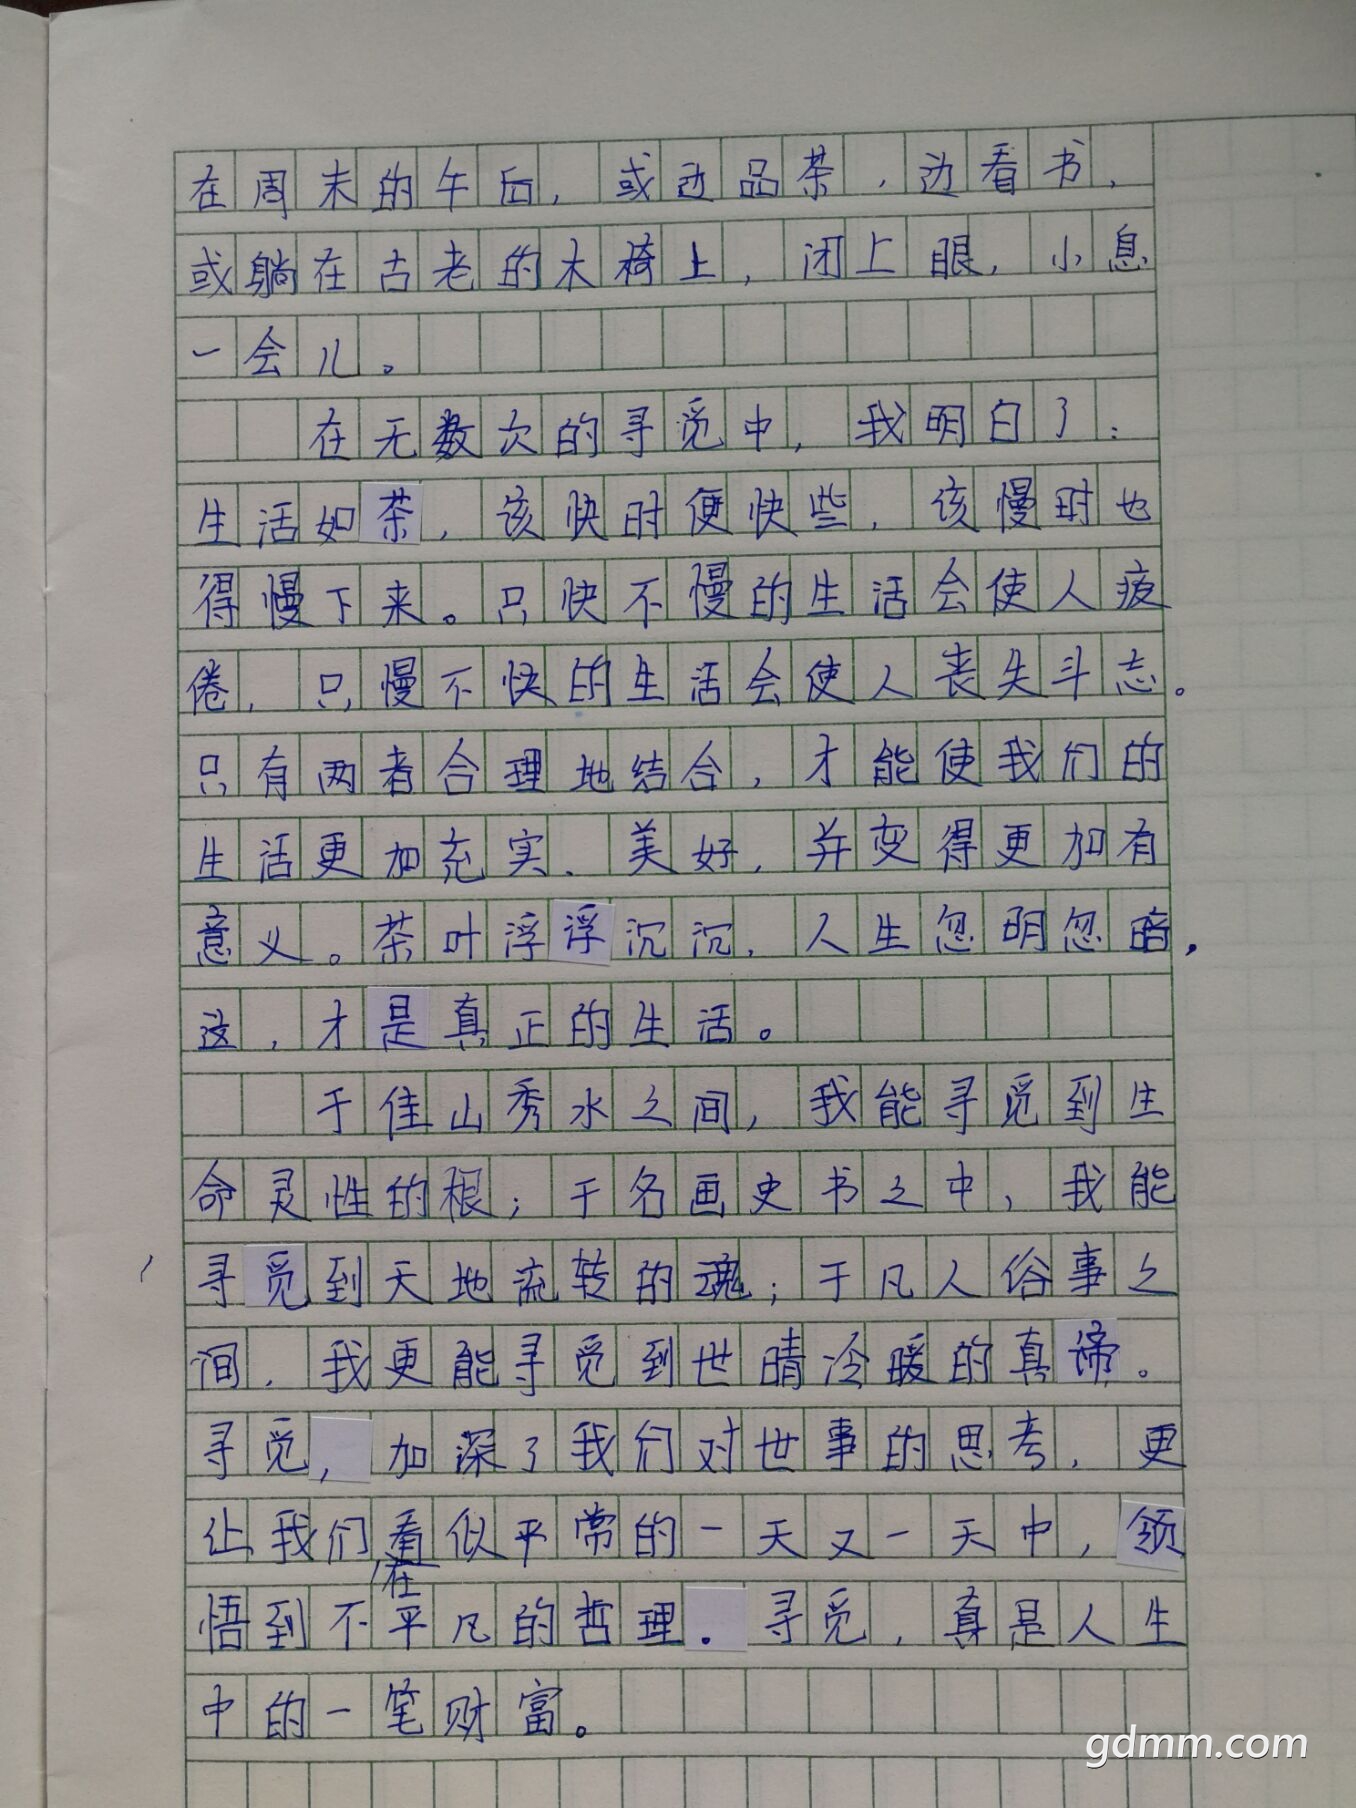 在周末的午后，或边品茶，边看书，
或躺在古老的木椅上，闭上眼，小息
一会儿。
在无数次的寻觅中，我明白了：
生活如茶，该快时便快些，该慢时也
得慢下来。只快不慢的生活会使人疲
倦，只慢不快的生活会使人丧失斗志。
只有两者合理地结合，才能使我们的
生活更加充实、美好，并变得更加有
意义。茶叶浮浮沉沉，人生忽明忽暗，
这，才是真正的生活。
于佳山秀水之间，我能寻觅到生
命灵性的根；于名画史书之中，我能
寻觅到天地流转的魂；于凡人俗事之
间，我更能寻觅到世晴冷暖的真谛。
寻觅，加深了我们对世事的思考，更
让我们看似平常的一天又一天中，领
在
悟到不平凡的哲理。寻觅，真是人生
中的一笔财富。
gdmm.com